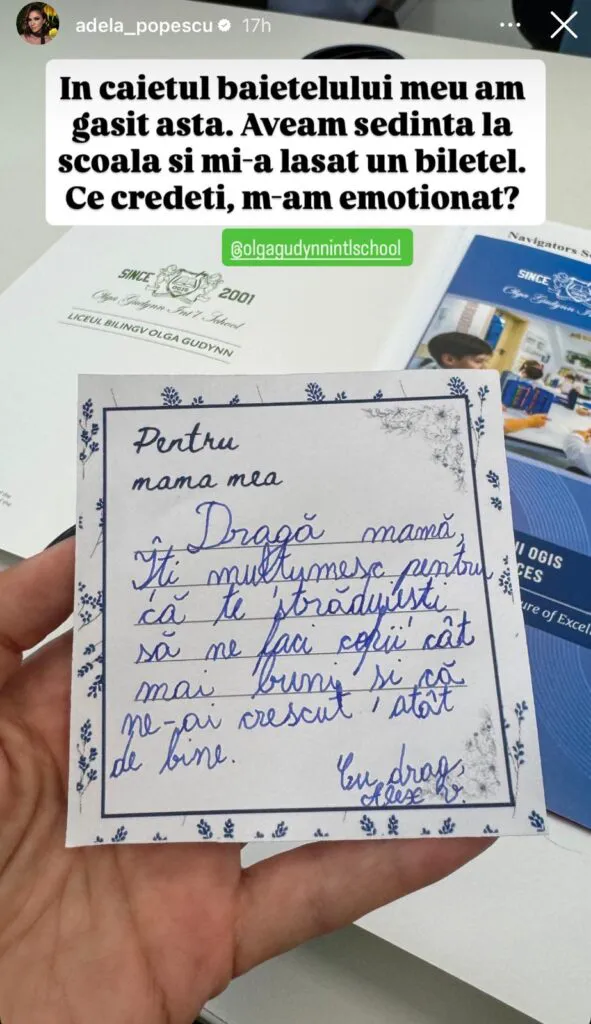 adela_popescu 17h
In caietul baietelului meu am
gasit asta. Aveam sedinta la
scoala si mi-a lasat un biletel.
Ce credeti, m-am emotionat?
@olgagudynnintlschool
Navigators
SINCE 2001
Olga Gudynn Int'l School
LICEUL BILINGV OLGA GUDYNN
SINCE
Olga Gudynn Int'l
Pentru
mama mea
Dragă mamă,
Îți mulțumesc pentru
că te străduiești
să ne faci copii cât
mai buni și că
ne-ai crescut atât
de bine.
Cu drag,
Alex V.
OGIS
CES
ure of Excel